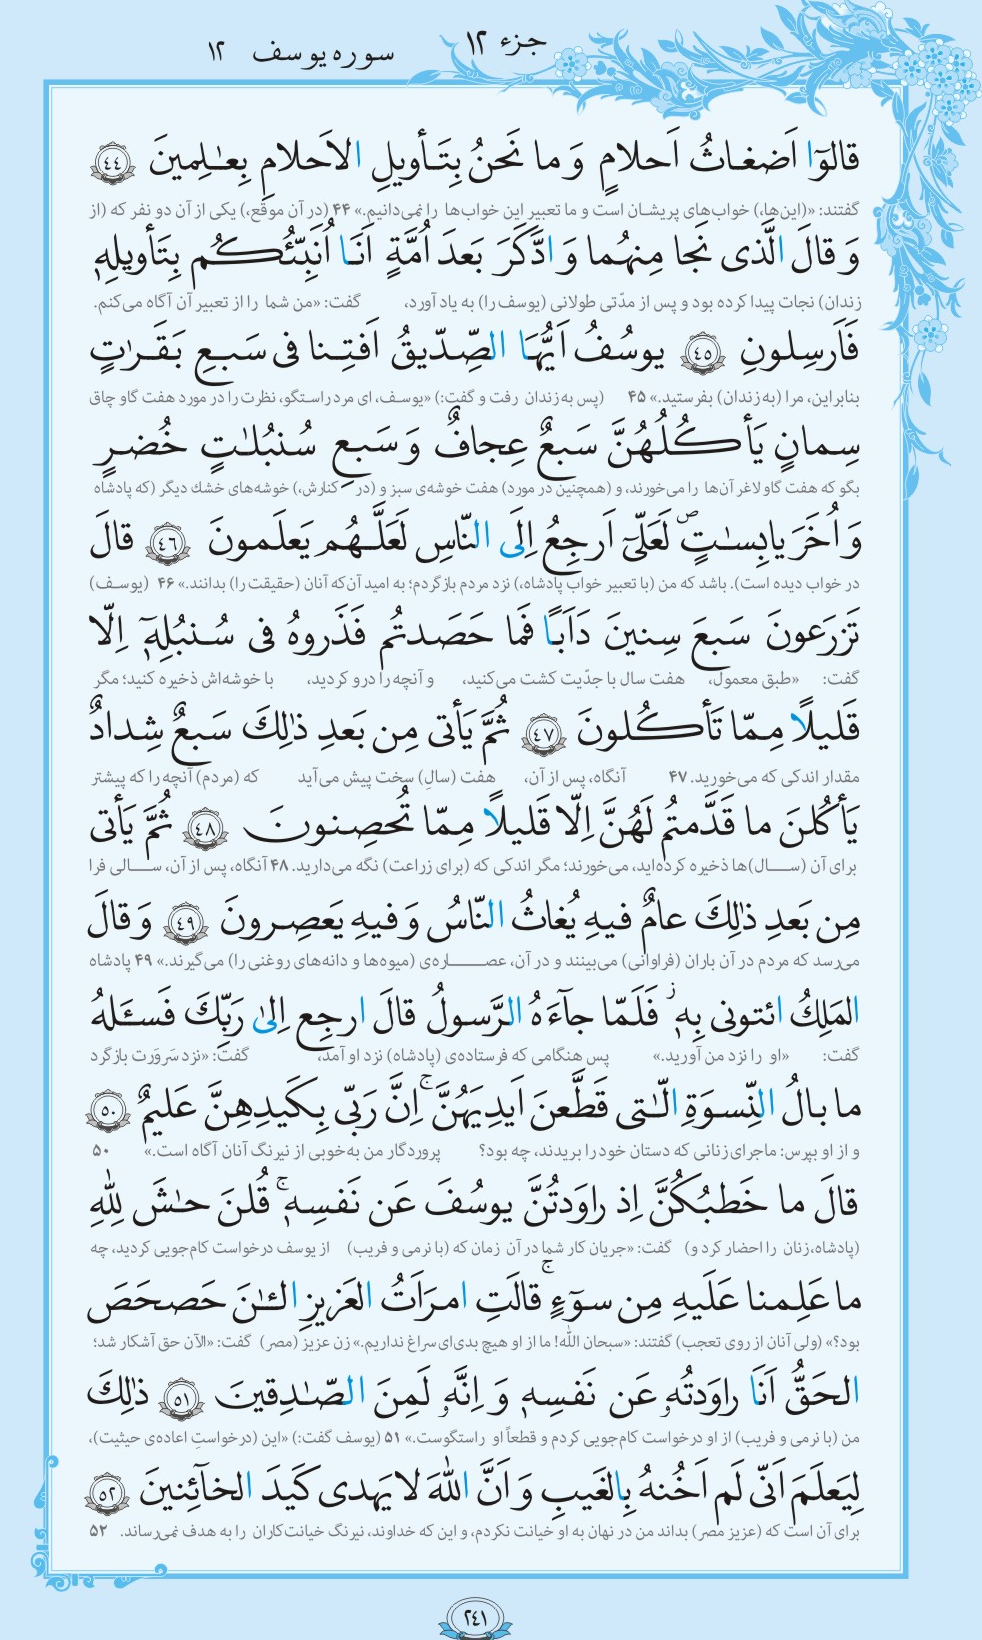 جزء ۱۲
سوره یوسف ۱۲
قالوٓا اَضغاثُ اَحلامٍ وَ ما نَحنُ بِتَأويلِ الاَحلامِ بِعٰلِمينَ ٤٤
گفتند: «(این‌ها،) خواب‌های پریشان است و ما تعبیر این خواب‌ها را نمی‌دانیم.» ۴۴ (در آن موقع،) یکی از آن دو نفر که (از
وَ قالَ الَّذى نَجا مِنهُما وَ ادَّكَرَ بَعدَ اُمَّةٍ اَنَا اُنَبِّئُكُم بِتَأويلِهٖ
زندان) نجات پیدا کرده بود و پس از مدّتی طولانی (یوسف را) به یاد آورد، گفت: «من شما را از تعبیر آن آگاه می‌کنم.
فَاَرسِلونِ ٤٥ يوسُفُ اَيُّهَا الصِّدّيقُ اَفتِنا فى سَبعِ بَقَرٰتٍ
بنابراین، مرا (به زندان) بفرستید.» ۴۵ (پس به زندان رفت و گفت:) «یوسف، ای مرد راستگو، نظرت را در مورد هفت گاو چاق
سِمانٍ يَأكُلُهُنَّ سَبعٌ عِجافٌ وَ سَبعِ سُنبُلٰتٍ خُضرٍ
بگو که هفت گاو لاغر آن‌ها را می‌خورند، و (همچنین در مورد) هفت خوشه‌ی سبز و (در کنارش،) خوشه‌های خشك دیگر (که پادشاه
وَ اُخَرَ يابِسٰتٍ ۖ لَعَلّىٓ اَرجِعُ اِلَى النّاسِ لَعَلَّهُم يَعلَمونَ ٤٦ قالَ
در خواب دیده است). باشد که من (با تعبیر خواب پادشاه،) نزد مردم بازگردم؛ به امید آن‌که آنان (حقیقت را) بدانند.» ۴۶ (یوسف)
تَزرَعونَ سَبعَ سِنينَ دَاَبًا فَما حَصَدتُم فَذَروهُ فى سُنبُلِهٖٓ اِلّا
گفت: «طبق معمول، هفت سال با جدّیت کشت می‌کنید، و آنچه را درو کردید، با خوشه‌اش ذخیره کنید؛ مگر
قَليلًا مِمّا تَأكُلونَ ٤٧ ثُمَّ يَأتى مِن بَعدِ ذٰلِكَ سَبعٌ شِدادٌ
مقدار اندکی که می‌خورید. ۴۷ آنگاه، پس از آن، هفت (سال) سخت پیش می‌آید که (مردم) آنچه را که پیشتر
يَأكُلنَ ما قَدَّمتُم لَهُنَّ اِلّا قَليلًا مِمّا تُحصِنونَ ٤٨ ثُمَّ يَأتى
برای آن (سال)ها ذخیره کرده‌اید، می‌خورند؛ مگر اندکی که (برای زراعت) نگه می‌دارید. ۴۸ آنگاه، پس از آن، سالی فرا
مِن بَعدِ ذٰلِكَ عامٌ فيهِ يُغاثُ النّاسُ وَ فيهِ يَعصِرونَ ٤٩ وَ قالَ
می‌رسد که مردم در آن باران (فراوانی) می‌بینند و در آن، عصاره‌ی (میوه‌ها و دانه‌های روغنی را) می‌گیرند.» ۴۹ پادشاه
المَلِكُ ائتونى بِهٖ ز فَلَمّا جآءَهُ الرَّسولُ قالَ ارجِع اِلىٰ رَبِّكَ فَسـَٔلهُ
گفت: «او را نزد من آورید.» پس هنگامی که فرستاده‌ی (پادشاه) نزد او آمد، گفت: «نزد سَروَرت بازگرد
ما بالُ النِّسوَةِ الّٰتى قَطَّعنَ اَيدِيَهُنَّ ۚ اِنَّ رَبّى بِكَيدِهِنَّ عَليمٌ ٥٠
و از او بپرس: ماجرای زنانی که دستان خود را بریدند، چه بود؟ پروردگار من به‌خوبی از نیرنگ آنان آگاه است.» ۵۰
قالَ ما خَطبُكُنَّ اِذ راوَدتُنَّ يوسُفَ عَن نَفسِهٖ ۚ قُلنَ حٰشَ لِلّٰهِ
(پادشاه، زنان را احضار کرد و) گفت: «جریان کار شما در آن زمان که (با نرمی و فریب) از یوسف درخواست کام‌جویی کردید، چه
ما عَلِمنا عَلَيهِ مِن سوٓءٍ ۚ قالَتِ امرَاَتُ العَزيزِ الـٰٔنَ حَصحَصَ
بود؟» (ولی آنان از روی تعجب) گفتند: «سبحان اللّٰه! ما از او هیچ بدی‌ای سراغ نداریم.» زن عزیز (مصر) گفت: «الآن حق آشکار شد؛
الحَقُّ اَنَا راوَدتُهٗ عَن نَفسِهٖ وَ اِنَّهٗ لَمِنَ الصّٰدِقينَ ٥١ ذٰلِكَ
من (با نرمی و فریب) از او درخواست کام‌جویی کردم و قطعاً او راستگوست.» ۵۱ (یوسف گفت:) «این (درخواستِ اعاده‌ی حیثیت)،
لِيَعلَمَ اَنّى لَم اَخُنهُ بِالغَيبِ وَ اَنَّ اللّٰهَ لا يَهدى كَيدَ الخآئِنينَ ٥٢
برای آن است که (عزیز مصر) بداند من در نهان به او خیانت نکردم، و این که خداوند، نیرنگ خیانت‌کاران را به هدف نمی‌رساند. ۵۲
۲۴۱